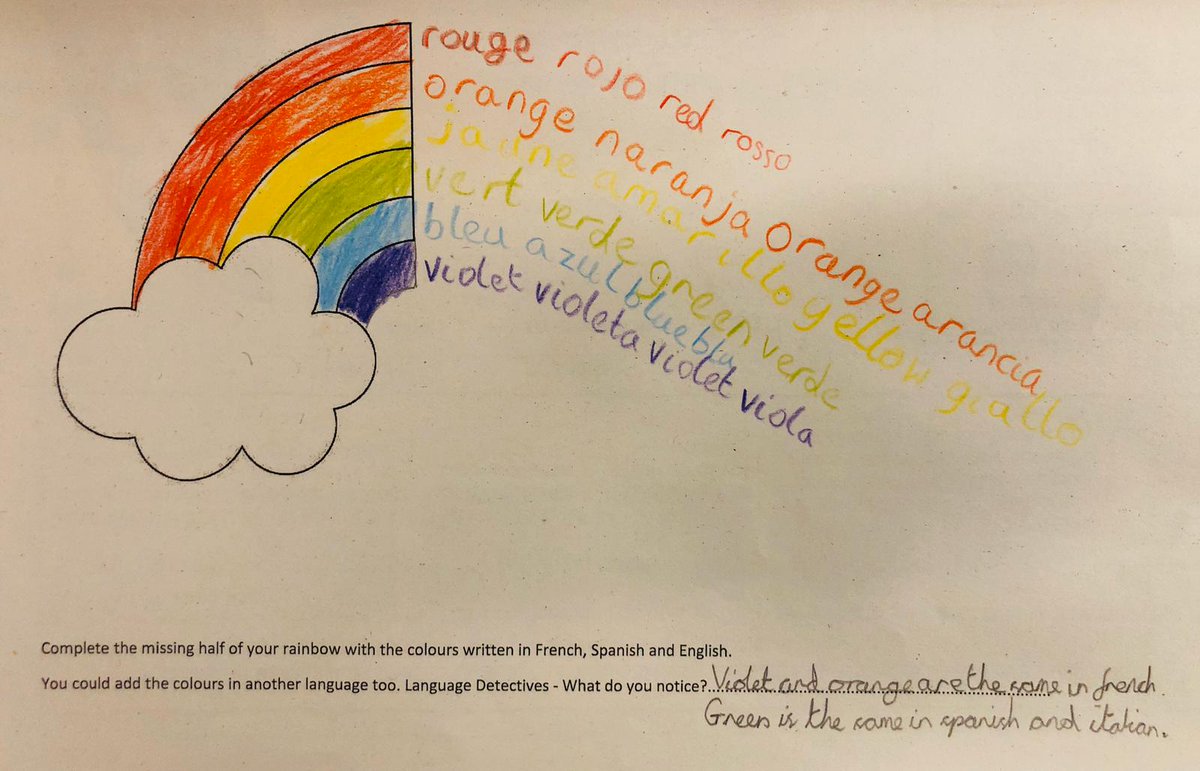 rouge rojo red rosso
orange naranja orange arancia
jaune amarillo yellow giallo
vert verde green verde
bleu azul blue blu
violet violeta violet viola
Complete the missing half of your rainbow with the colours written in French, Spanish and English.
You could add the colours in another language too. Language Detectives - What do you notice? Violet and orange are the same in french.
Green is the same in spanish and italian.